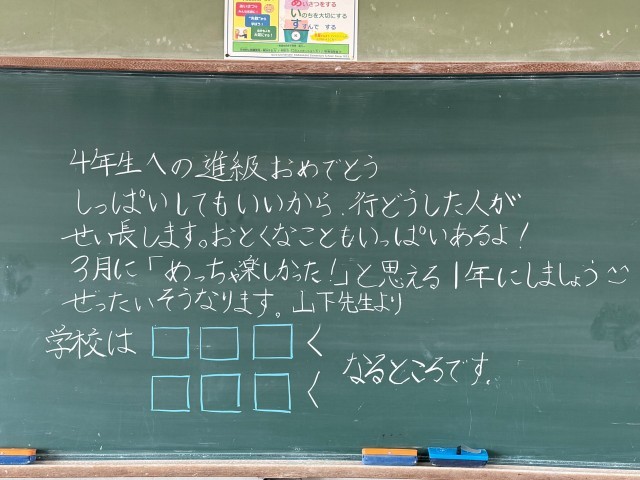 あいさつをする
いのちを大切にする
すすんで する
4年生への進級おめでとう
しっぱいしてもいいから、行どうした人が
せい長します。おとくなこともいっぱいあるよ!
3月に「めっちゃ楽しかった!」と思える1年にしましょう
ぜったいそうなります。山下先生より
学校は □□□く
□□□く なるところです。